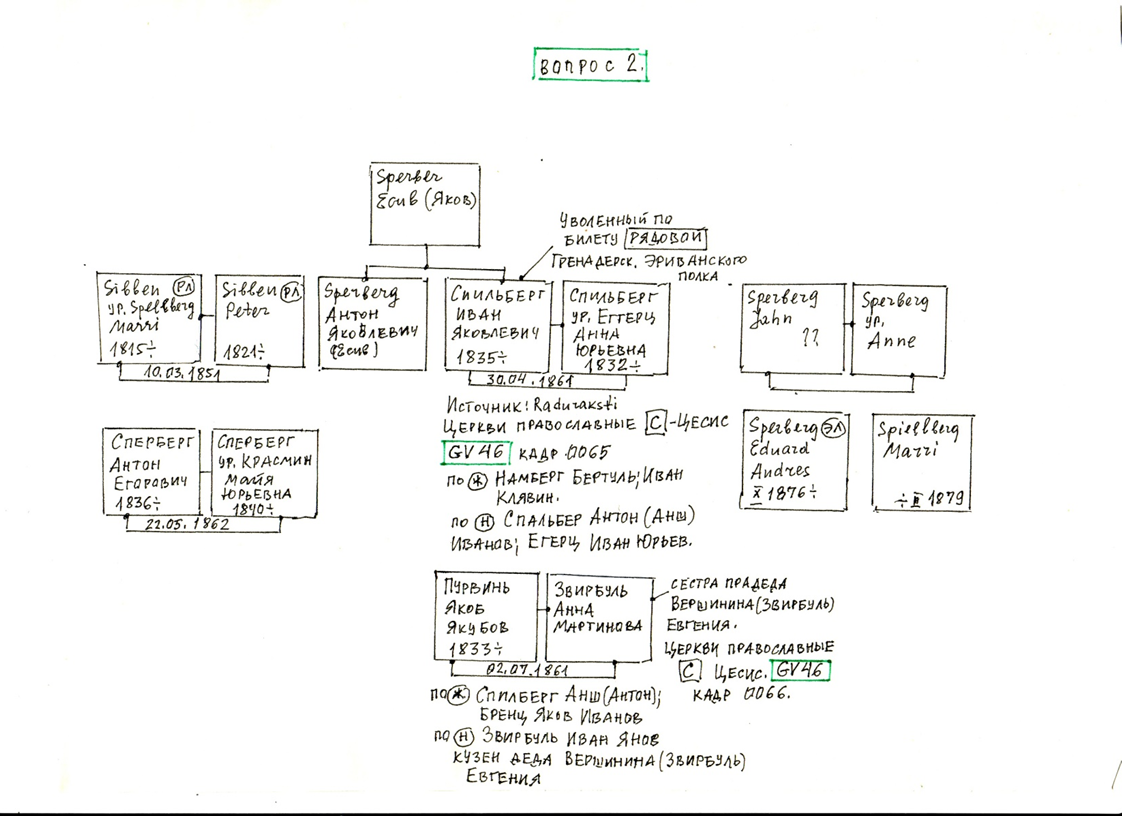 ВОПРОС 2.
Sperber
Есив (ЯКОВ)
УВОЛЕННЫЙ ПО
БИЛЕТУ РЯДОВОЙ
ГРЕНАДЕРСК. ЭРИВАНСКОГО
ПОЛКА
Sibben РЛ
ур. Spellberg
Marri
1815÷
Sibben РЛ
Peter
1821÷
10.03.1851
Sperberg
АНТОН
ЯКОВЛЕВИЧ
(Есив)
СПИЛЬБЕРГ
ИВАН
ЯКОВЛЕВИЧ
1835÷
СПИЛЬБЕРГ
УР. ЕГГЕРЦ
АННА
ЮРЬЕВНА
1832÷
30.04.1861
Sperberg
Jahn
??
Sperberg
УР.
Anne
ИСТОЧНИК: Raduraksti
ЦЕРКВИ ПРАВОСЛАВНЫЕ С -ЦЕСИС
GV46 КАДР 0065
ПО Ж НАМБЕРГ БЕРТУЛЬ; ИВАН
КЛЯВИН.
ПО Н СПАЛЬБЕР АНТОН (АНШ)
ИВАНОВ; ЕГЕРЦ ИВАН ЮРЬЕВ.
СПЕРБЕРГ
АНТОН
ЕГОРОВИЧ
1836÷
СПЕРБЕРГ
УР. КРАСМИН
МАЙЯ
ЮРЬЕВНА
1840÷
22.05.1862
Sperberg ЭЛ
Eduard
Andres
X 1876÷
Spiellberg
Marri
÷ II 1879
ПУРВИНЬ
ЯКОБ
ЯКУБОВ
1833÷
ЗВИРБУЛЬ
АННА
МАРТИНОВА
02.07.1861
СЕСТРА ПРАДЕДА
ВЕРШИНИНА (ЗВИРБУЛЬ)
ЕВГЕНИЯ.
ЦЕРКВИ ПРАВОСЛАВНЫЕ
С ЦЕСИС. GV46
КАДР 0066.
ПО Ж СПИЛБЕРГ АНШ (АНТОН);
БРЕНЦ ЯКОВ ИВАНОВ
ПО Н ЗВИРБУЛЬ ИВАН ЯНОВ
КУЗЕН ДЕДА ВЕРШИНИНА (ЗВИРБУЛЬ)
ЕВГЕНИЯ